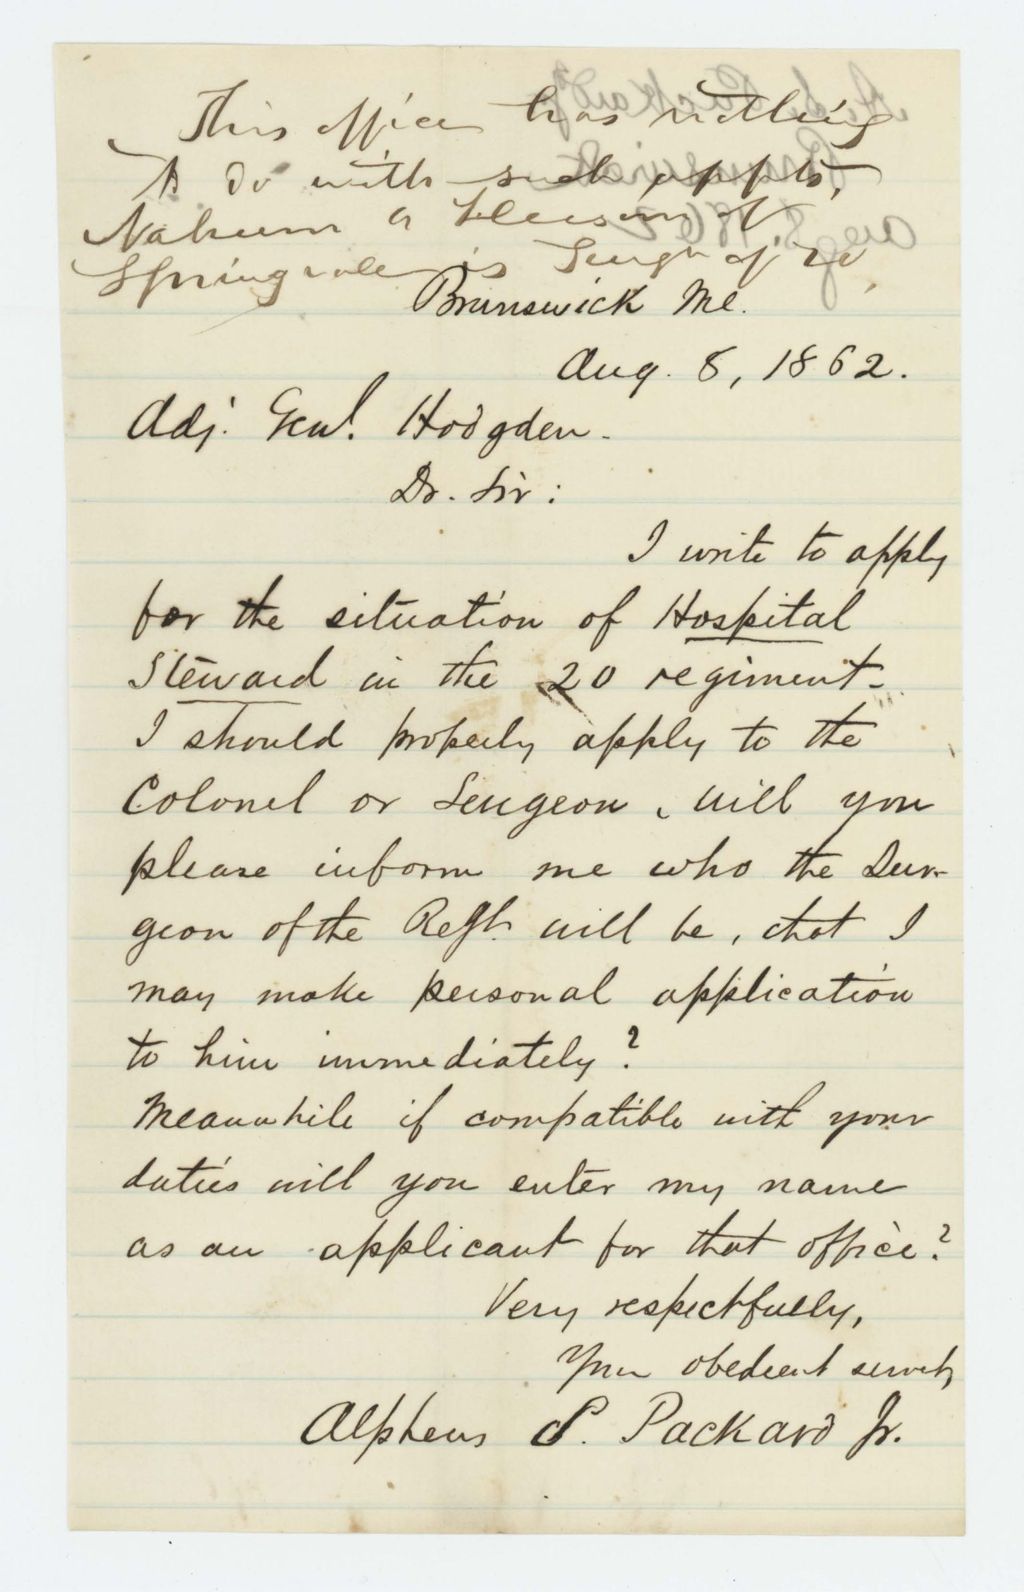 This office has nothing
to do with such appts,
Nahum A Hersom of
Springvale is Surgn of 20
Brunswick Me.
Aug. 8, 1862.
Adj. Genl. Hodgden.
Dr. Sir:
I write to apply
for the situation of Hospital
Steward in the 20 regiment.
I should properly apply to the
Colonel or Surgeon, will you
please inform me who the Sur-
geon of the Regt. will be, that I
may make personal application
to him immediately?
Meanwhile if compatible with your
duties will you enter my name
as an applicant for that office?
Very respectfully,
Your obedient servt,
Alpheus S. Packard Jr.
A. S. Packard Jr
Brunswick
Aug 8 1862